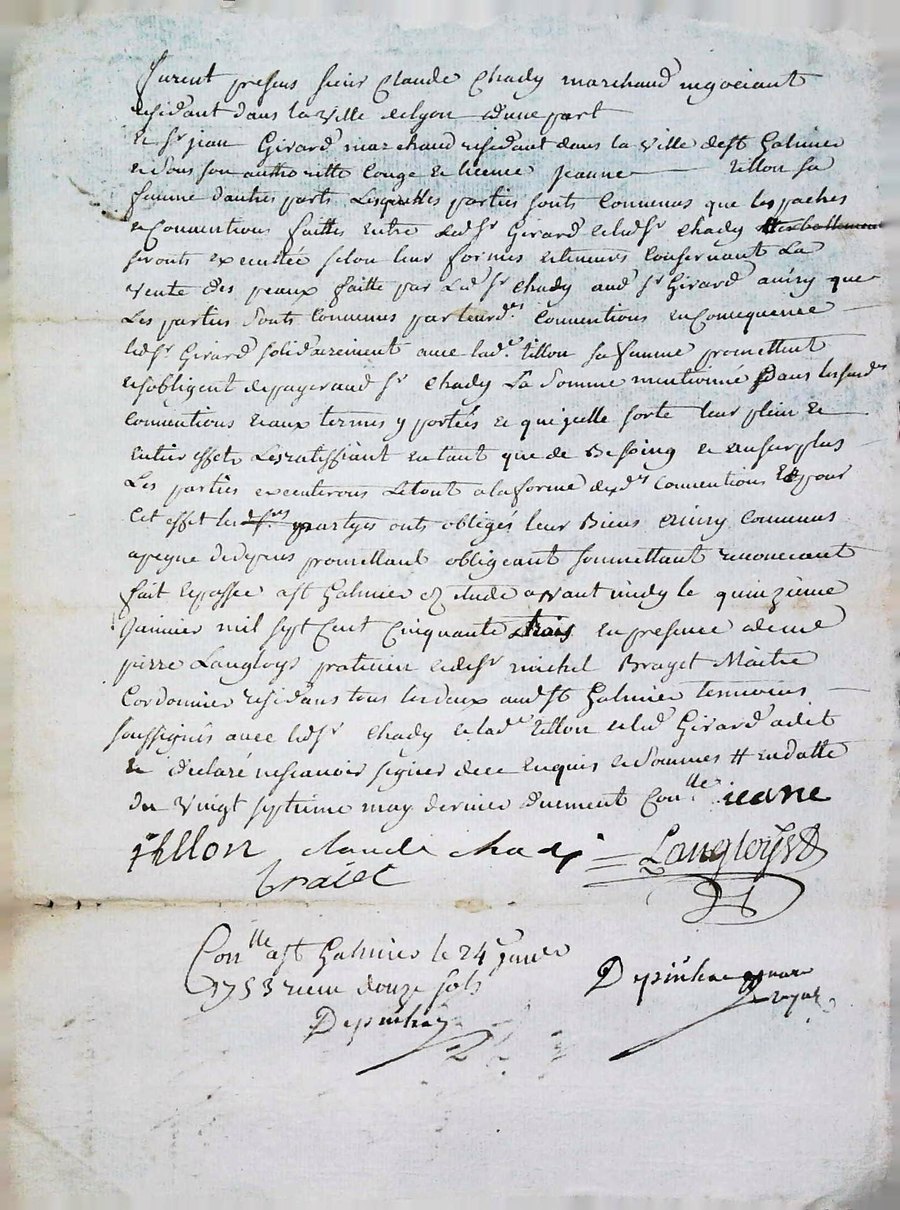 furent presens sieur Claude Chady marchand negotiant
residant dans la ville de Lyon d'une part
et sr jean Girard marchand residant dans la ville de st Galmier
et sous son authoritte conge et licence jeanne tillon sa
femme d'autres parts Lesquelles parties sonts convenus que les paches
et Conventions faittes entre Led sr Girard et led sr Chady
seronts executtée selon leur formes et teneurs consernant La
vente des peaux faitte par Led sr Chady aud sr Girard ainsy que
Les parties sonts Convenus par leurd.es Conventions en consequence
led sr Girard solidairement avec lad.e tillon sa femme promettent
et s'obligent de payer aud sr Chady La somme mentionné dans lesud.es
Conventions et aux termes y portés et qu'icelle sorte leur plein et
entier effets Les ratiffiant en tant que de Besoing et en surplus
Les parties executerons Le tout a la forme desd.es Conventions et pour
Cet effet les partyes onts obligés leur Biens ainsy convenus
a peyne de depens promettant obligeant soumettant renonceant
fait et passée a st Galmier etude avant midy le quinzieme
Janvier mil sept Cent Cinquante trois en presence de me
pierre Langloys praticien et de sr michel Brayet Maitre
Cordonnier residans tous les deux aud st Galmier temoins
soussignés avec led sr Chady et lad.e tillon et led Girard a dit
et declaré ne scavoir signer de ce enquis et sommes # en datte
du vingt septieme may dernier duement Con.lle jeane
tillon claude chady Langloys
braiet
Con.lle a st Galmier le 24e janvier
1753 receu douze sols
Depinhac
Depinhac notaire
Royal